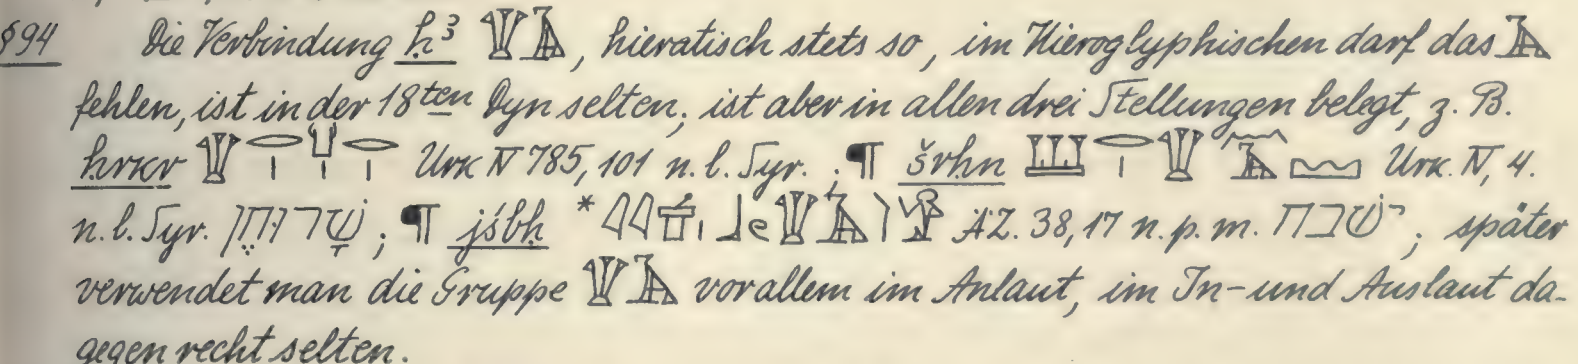 §94 Die Verbindung h³ 𓇉𓄿, hieratisch stets so, im Hieroglyphischen darf das 𓄿
fehlen, ist in der 18ten Dyn selten, ist aber in allen drei Stellungen belegt, z. B.
hrkr 𓇉𓂋𓏤𓂓𓂋𓏤 Urk IV 785,101 n. l. Syr. ; ¶ šrhn 𓆷𓂋𓏤𓇉𓄿𓈖𓈉 Urk. IV, 4.
n. l. Syr. שָׁרוּחֶן ; ¶ jśbh * 𓇉𓄿 ÄZ. 38,17 n. p. m. ישׁבח ; später
verwendet man die Gruppe 𓇉𓄿 vor allem im Anlaut, im In- und Auslaut da-
gegen recht selten.